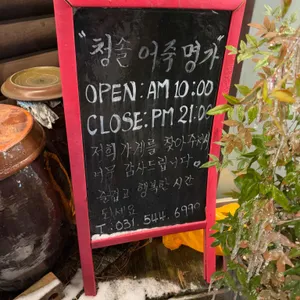 "청솔 어죽 명가"
OPEN: AM 10:00
CLOSE: PM 21:00
저희 가게를 찾아주셔서
너무 감사드립니다.
즐겁고 행복한 시간
되세요
T: 031. 544. 6990